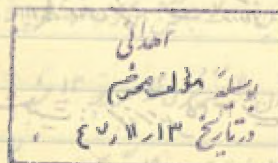 اهدائی
بوسیلهٔ مؤلف محترم
در تاریخ ۱۳ر۱۱ر۴۷